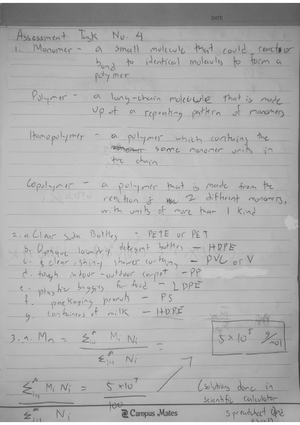 DATE
Assessment Task No. 4
1. Monomer - a small molecule that could react or
bond to identical molecules to form a
polymer
Polymer - a long-chain molecule that is made
up of a repeating pattern of monomers
Homopolymer - a polymer which contains the
same monomer units in
the chain
Copolymer - a polymer that is made from the
reaction of 2 different monomers,
with units of more than 1 kind
2. a. Clear Soda Bottles - PETE or PET
b. Opaque laundry detergent bottles - HDPE
c. clear-shiny shower curtains - PVC or V
d. tough indoor-outdoor carpet - PP
e. plastic baggies for food - LDPE
f. packaging peanuts - PS
g. containers of milk - HDPE
3. a. Mn = Σ Mi Ni / Σ Ni
5 × 10⁵ g/mol
Σ Mi Ni / Σ Ni = 5 × 10⁷ / 100
(solutions done in
scientific calculator
spreadsheet
Campus Mates